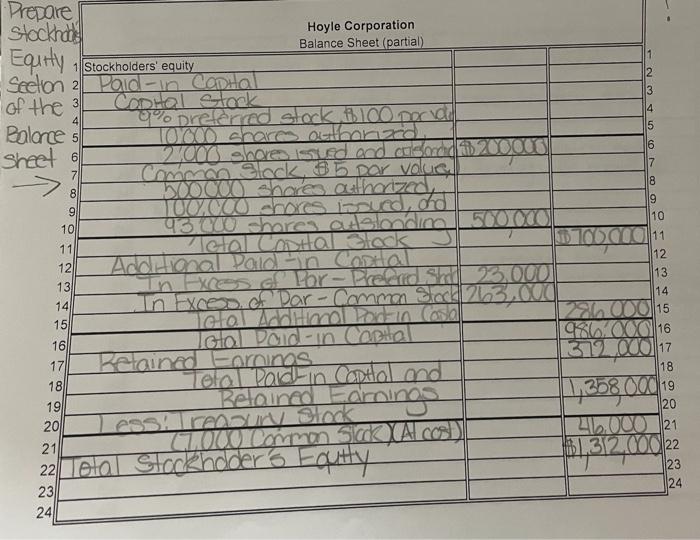 Prepare
Stockholders
Equity
Section
of the
Balance
Sheet
Hoyle Corporation
Balance Sheet (partial)
1 Stockholders' equity 1
2 Paid-in Capital 2
3 Capital Stock 3
4 9% preferred stock, $100 par value 4
5 10,000 shares authorized, 5
6 2,000 shares issued and outstanding $200,000 6
7 Common Stock, $5 par value, 7
8 500,000 shares authorized, 8
9 100,000 shares issued, and 9
10 93,000 shares outstanding 500,000 10
11 Total Capital Stock $700,000 11
12 Additional Paid-in Capital 12
13 In Excess of Par-Preferred Stock 23,000 13
14 In Excess of Par-Common Stock 263,000 14
15 Total Additional Paid-in Capital 286,000 15
16 Total Paid-in Capital 986,000 16
17 Retained Earnings 372,000 17
18 Total Paid-in Capital and 18
19 Retained Earnings 1,358,000 19
20 Less: Treasury Stock 20
21 (7,000 Common Stock) (At cost) 46,000 21
22 Total Stockholder's Equity $1,312,000 22
23 23
24 24